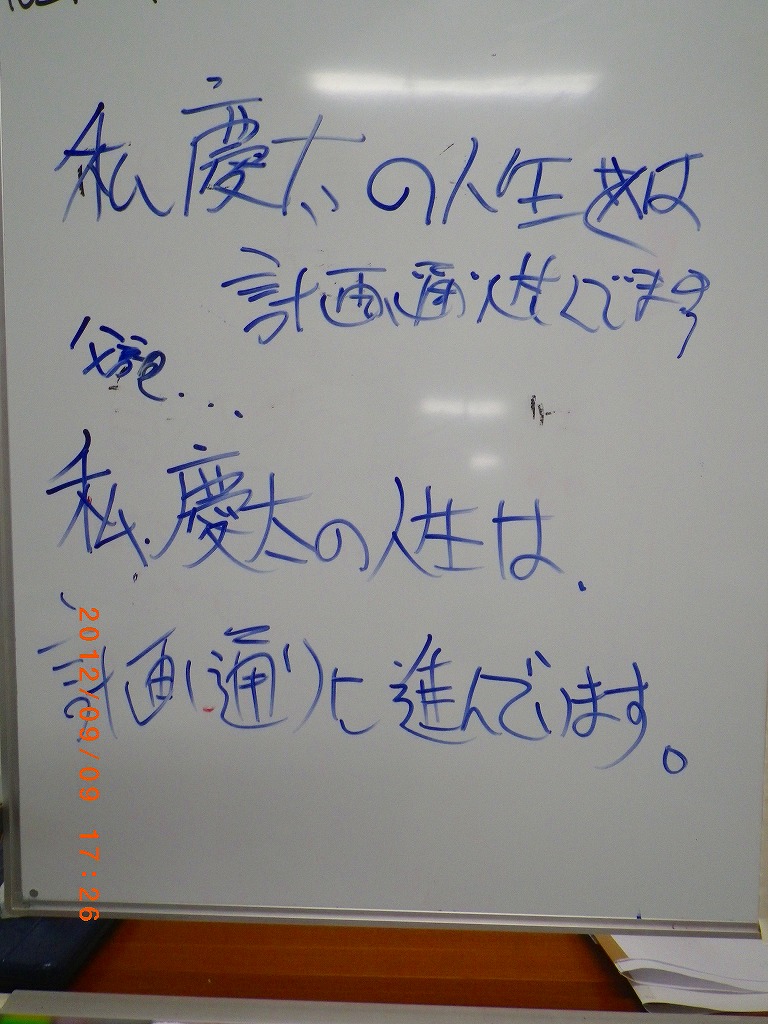 私慶太の人生は
計画通進んでます
...
私慶太の人生は.
計画通りに進んでいます。
2012/09/09 17:26